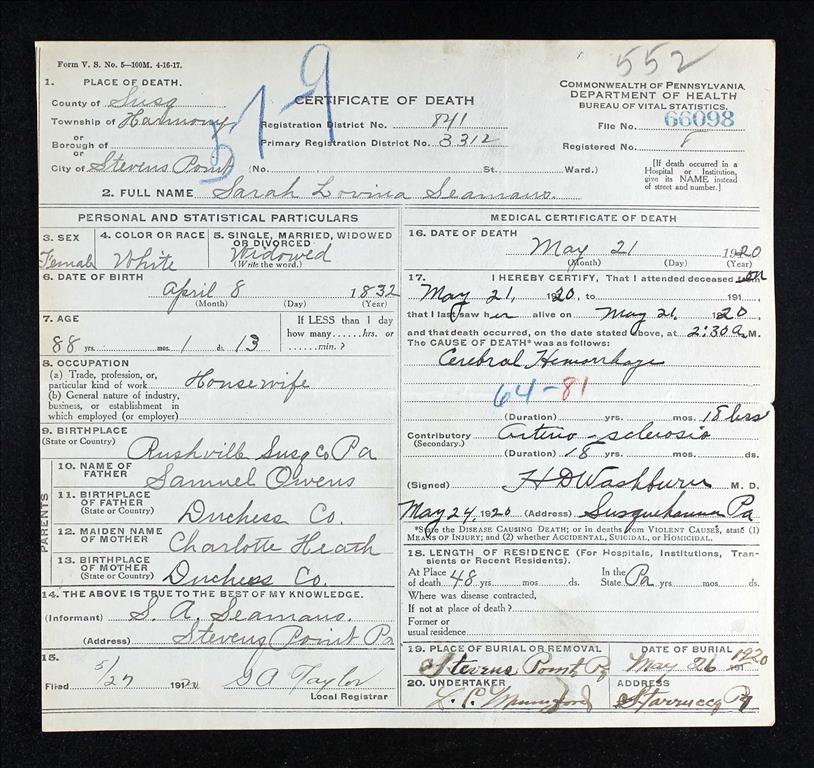 552
Form V. S. No. 5—100M. 4-16-17.
1. PLACE OF DEATH.
County of Susq
Township of Harmony
or
Borough of
or
City of Stevens Point
579
CERTIFICATE OF DEATH
Registration District No. 841
Primary Registration District No. 3312
(No. St. Ward.)
COMMONWEALTH OF PENNSYLVANIA
DEPARTMENT OF HEALTH
BUREAU OF VITAL STATISTICS.
File No. 66098
Registered No.
[If death occurred in a
Hospital or Institution,
give its NAME instead
of street and number.]
2. FULL NAME Sarah Lovina Seamans.
PERSONAL AND STATISTICAL PARTICULARS
3. SEX
Female
4. COLOR OR RACE
White
5. SINGLE, MARRIED, WIDOWED
OR DIVORCED
Widowed
(Write the word.)
6. DATE OF BIRTH
April 8 1832
(Month) (Day) (Year)
7. AGE
88 yrs. 1 mos. 13 ds.
If LESS than 1 day
how many......hrs. or
......min.?
8. OCCUPATION
(a) Trade, profession, or,
particular kind of work Housewife
(b) General nature of industry,
business, or establishment in
which employed (or employer)
9. BIRTHPLACE
(State or Country)
Rushville Susq Co Pa
PARENTS
10. NAME OF
FATHER
Samuel Owens
11. BIRTHPLACE
OF FATHER
(State or Country)
Duchess Co.
12. MAIDEN NAME
OF MOTHER
Charlotte Heath
13. BIRTHPLACE
OF MOTHER
(State or Country)
Duchess Co.
14. THE ABOVE IS TRUE TO THE BEST OF MY KNOWLEDGE.
(Informant) S. A. Seamans.
(Address) Stevens Point Pa
15.
Filed 5/27 1920 S A Taylor
Local Registrar
MEDICAL CERTIFICATE OF DEATH
16. DATE OF DEATH
May 21 1920
(Month) (Day) (Year)
17. I HEREBY CERTIFY, That I attended deceased
May 21, 1920, to 191 ,
that I last saw her alive on May 21. 1920,
and that death occurred, on the date stated above, at 2:30 a M.
The CAUSE OF DEATH* was as follows:
Cerebral Hemorrhage
64-81
(Duration) yrs. mos. 18 hrs
Contributory arterio-sclerosis
(Secondary.)
(Duration) 18 yrs. mos. ds.
(Signed) H D Washburn M. D.
May 24, 1920 (Address) Susquehanna Pa
*State the DISEASE CAUSING DEATH; or in deaths from VIOLENT CAUSES, state (1)
MEANS OF INJURY; and (2) whether ACCIDENTAL, SUICIDAL, or HOMICIDAL.
18. LENGTH OF RESIDENCE (For Hospitals, Institutions, Tran-
sients or Recent Residents).
At Place
of death 48 yrs. mos. ds.
In the
State Pa yrs. mos. ds.
Where was disease contracted,
If not at place of death?
Former or
usual residence
19. PLACE OF BURIAL OR REMOVAL
Stevens Point Pa
DATE OF BURIAL
May 26 1920
20. UNDERTAKER
ADDRESS
Starrucca Pa